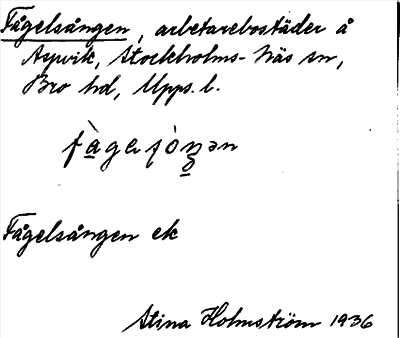 Fågelsången, arbetarebostäder å
Aspvik, Stockholms-Näs sn,
Bro hd, Upps. l.
Fågelsången ek
Stina Holmström 1936